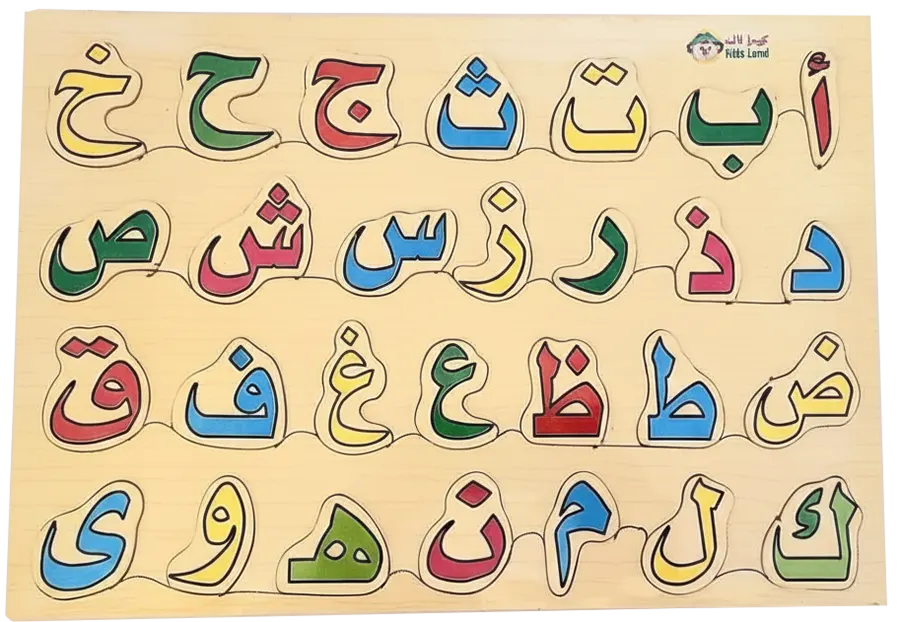 Fitts Land
أ ب ت ث ج ح خ
د ذ ر ز س ش ص
ض ط ظ ع غ ف ق
ك ل م ن هـ و ى